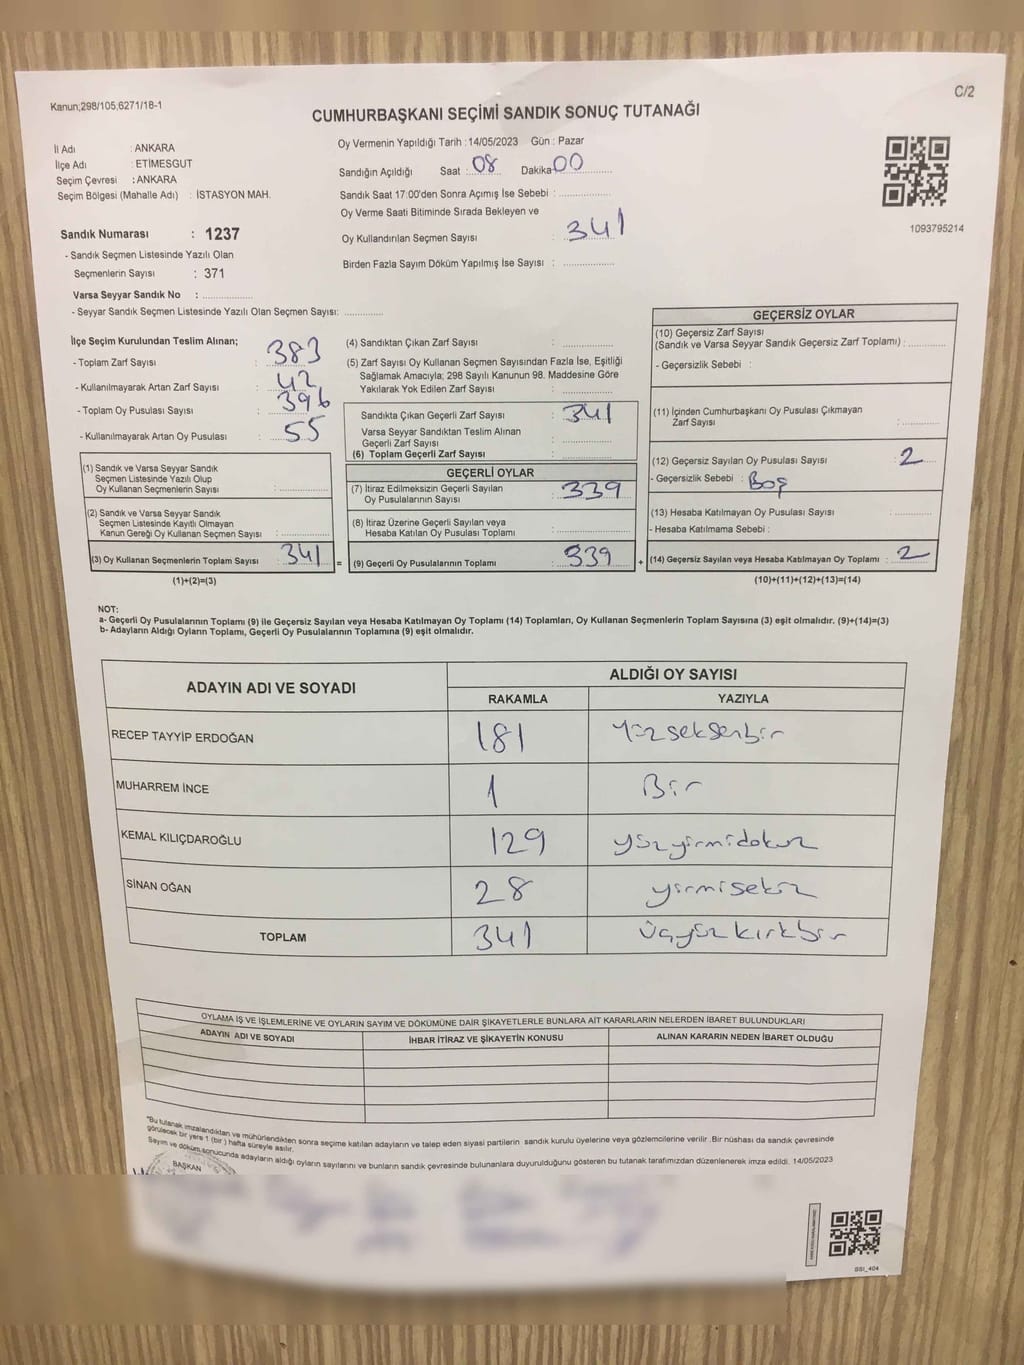 Kanun;298/105,6271/18-1
C/2
CUMHURBAŞKANI SEÇİMİ SANDIK SONUÇ TUTANAĞI
İl Adı : ANKARA
İlçe Adı : ETİMESGUT
Seçim Çevresi : ANKARA
Seçim Bölgesi (Mahalle Adı) : İSTASYON MAH.
Sandık Numarası : 1237
- Sandık Seçmen Listesinde Yazılı Olan
Seçmenlerin Sayısı : 371
Varsa Seyyar Sandık No : ..............
- Seyyar Sandık Seçmen Listesinde Yazılı Olan Seçmen Sayısı: ............
Oy Vermenin Yapıldığı Tarih : 14/05/2023 Gün : Pazar
Sandığın Açıldığı Saat : 08 Dakika 00
Sandık Saat 17:00'den Sonra Açımış İse Sebebi : ..............
Oy Verme Saati Bitiminde Sırada Bekleyen ve
Oy Kullandırılan Seçmen Sayısı : 341
Birden Fazla Sayım Döküm Yapılmış İse Sayısı : ..............
1093795214
İlçe Seçim Kurulundan Teslim Alınan;
- Toplam Zarf Sayısı : 383
- Kullanılmayarak Artan Zarf Sayısı : 42
- Toplam Oy Pusulası Sayısı : 396
- Kullanılmayarak Artan Oy Pusulası : 55
(1) Sandık ve Varsa Seyyar Sandık
Seçmen Listesinde Yazılı Olup
Oy Kullanan Seçmenlerin Sayısı : ..............
(2) Sandık ve Varsa Seyyar Sandık
Seçmen Listesinde Kayıtlı Olmayan
Kanun Gereği Oy Kullanan Seçmen Sayısı : ..............
(3) Oy Kullanan Seçmenlerin Toplam Sayısı : 341 =
(1)+(2)=(3)
(4) Sandıktan Çıkan Zarf Sayısı : ..............
(5) Zarf Sayısı Oy Kullanan Seçmen Sayısından Fazla İse, Eşitliği
Sağlamak Amacıyla; 298 Sayılı Kanunun 98. Maddesine Göre
Yakılarak Yok Edilen Zarf Sayısı : ..............
Sandıkta Çıkan Geçerli Zarf Sayısı : 341
Varsa Seyyar Sandıktan Teslim Alınan
Geçerli Zarf Sayısı : ..............
(6) Toplam Geçerli Zarf Sayısı : ..............
GEÇERLİ OYLAR
(7) İtiraz Edilmeksizin Geçerli Sayılan
Oy Pusulalarının Sayısı : 339
(8) İtiraz Üzerine Geçerli Sayılan veya
Hesaba Katılan Oy Pusulası Toplamı : ..............
(9) Geçerli Oy Pusulalarının Toplamı : 339 +
GEÇERSİZ OYLAR
(10) Geçersiz Zarf Sayısı
(Sandık ve Varsa Seyyar Sandık Geçersiz Zarf Toplamı) : ..........
- Geçersizlik Sebebi :
(11) İçinden Cumhurbaşkanı Oy Pusulası Çıkmayan
Zarf Sayısı : ..........
(12) Geçersiz Sayılan Oy Pusulası Sayısı : 2
- Geçersizlik Sebebi : Boş
(13) Hesaba Katılmayan Oy Pusulası Sayısı : ..........
- Hesaba Katılmama Sebebi :
(14) Geçersiz Sayılan veya Hesaba Katılmayan Oy Toplamı : 2
(10)+(11)+(12)+(13)=(14)
NOT:
a- Geçerli Oy Pusulalarının Toplamı (9) ile Geçersiz Sayılan veya Hesaba Katılmayan Oy Toplamı (14) Toplamları, Oy Kullanan Seçmenlerin Toplam Sayısına (3) eşit olmalıdır. (9)+(14)=(3)
b- Adayların Aldığı Oyların Toplamı, Geçerli Oy Pusulalarının Toplamına (9) eşit olmalıdır.
ADAYIN ADI VE SOYADI ALDIĞI OY SAYISI
RAKAMLA YAZIYLA
RECEP TAYYİP ERDOĞAN 181 Yüzseksenbir
MUHARREM İNCE 1 Bir
KEMAL KILIÇDAROĞLU 129 yüzyirmidokuz
SİNAN OĞAN 28 yirmisekiz
TOPLAM 341 Üçyüzkırkbir
OYLAMA İŞ VE İŞLEMLERİNE VE OYLARIN SAYIM VE DÖKÜMÜNE DAİR ŞİKAYETLERLE BUNLARA AİT KARARLARIN NELERDEN İBARET BULUNDUKLARI
ADAYIN ADI VE SOYADI İHBAR İTİRAZ VE ŞİKAYETİN KONUSU ALINAN KARARIN NEDEN İBARET OLDUĞU
"Bu tutanak imzalandıktan ve mühürlendikten sonra seçime katılan adayların ve talep eden siyasi partilerin sandık kurulu üyelerine veya gözlemcilerine verilir .Bir nüshası da sandık çevresinde
görülecek bir yere 1 (bir ) hafta süreyle asılır.
Sayım ve döküm sonucunda adayların aldığı oyların sayılarını ve bunların sandık çevresinde bulunanlara duyurulduğunu gösteren bu tutanak tarafımızdan düzenlenerek imza edildi. 14/05/2023
BAŞKAN
SSI_404